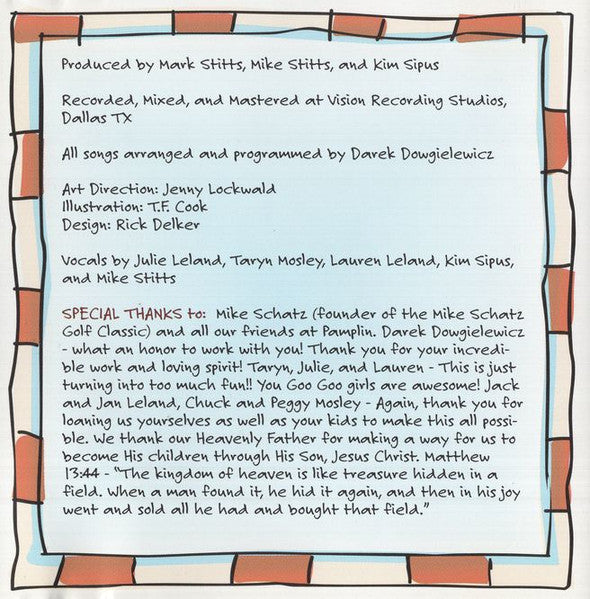 Produced by Mark Stitts, Mike Stitts, and Kim Sipus
Recorded, Mixed, and Mastered at Vision Recording Studios,
Dallas TX
All songs arranged and programmed by Darek Dowgielewicz
Art Direction: Jenny Lockwald
Illustration: T.F. Cook
Design: Rick Delker
Vocals by Julie Leland, Taryn Mosley, Lauren Leland, Kim Sipus,
and Mike Stitts
SPECIAL THANKS to: Mike Schatz (founder of the Mike Schatz
Golf Classic) and all our friends at Pamplin. Darek Dowgielewicz
- what an honor to work with you! Thank you for your incredi-
ble work and loving spirit! Taryn, Julie, and Lauren - This is just
turning into too much fun!! You Goo Goo girls are awesome! Jack
and Jan Leland, Chuck and Peggy Mosley - Again, thank you for
loaning us yourselves as well as your kids to make this all possi-
ble. We thank our Heavenly Father for making a way for us to
become His children through His Son, Jesus Christ. Matthew
13:44 - "The kingdom of heaven is like treasure hidden in a
field. When a man found it, he hid it again, and then in his joy
went and sold all he had and bought that field."